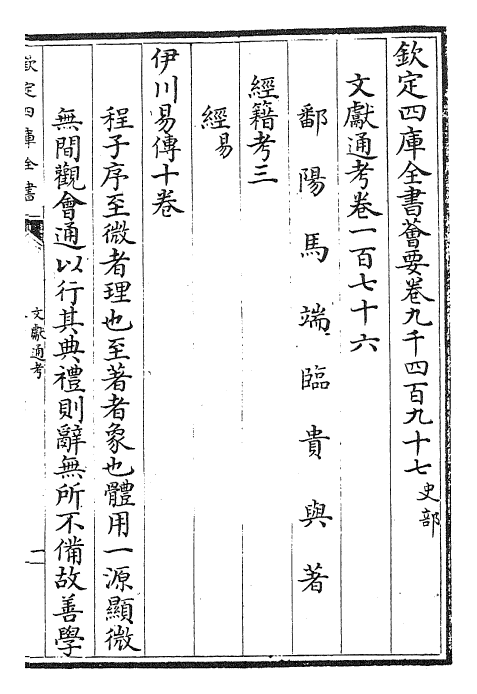 欽定四庫全書薈要卷九千四百九十七 史部
文獻通考卷一百七十六
鄱陽馬端臨貴與著
經籍考三
經易
伊川易傳十卷
程子序至微者理也至著者象也體用一源顯微
無間觀會通以行其典禮則辭無所不備故善學
欽定四庫全書
文獻通考